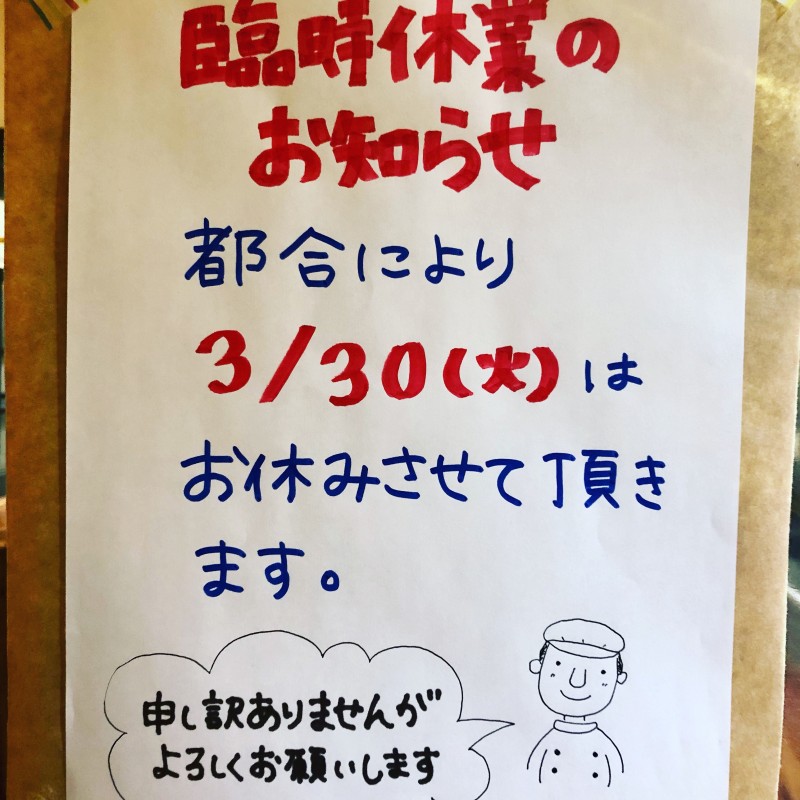 臨時休業の
お知らせ
都合により
3/30(火)は
お休みさせて頂き
ます。
申し訳ありませんが
よろしくお願いします